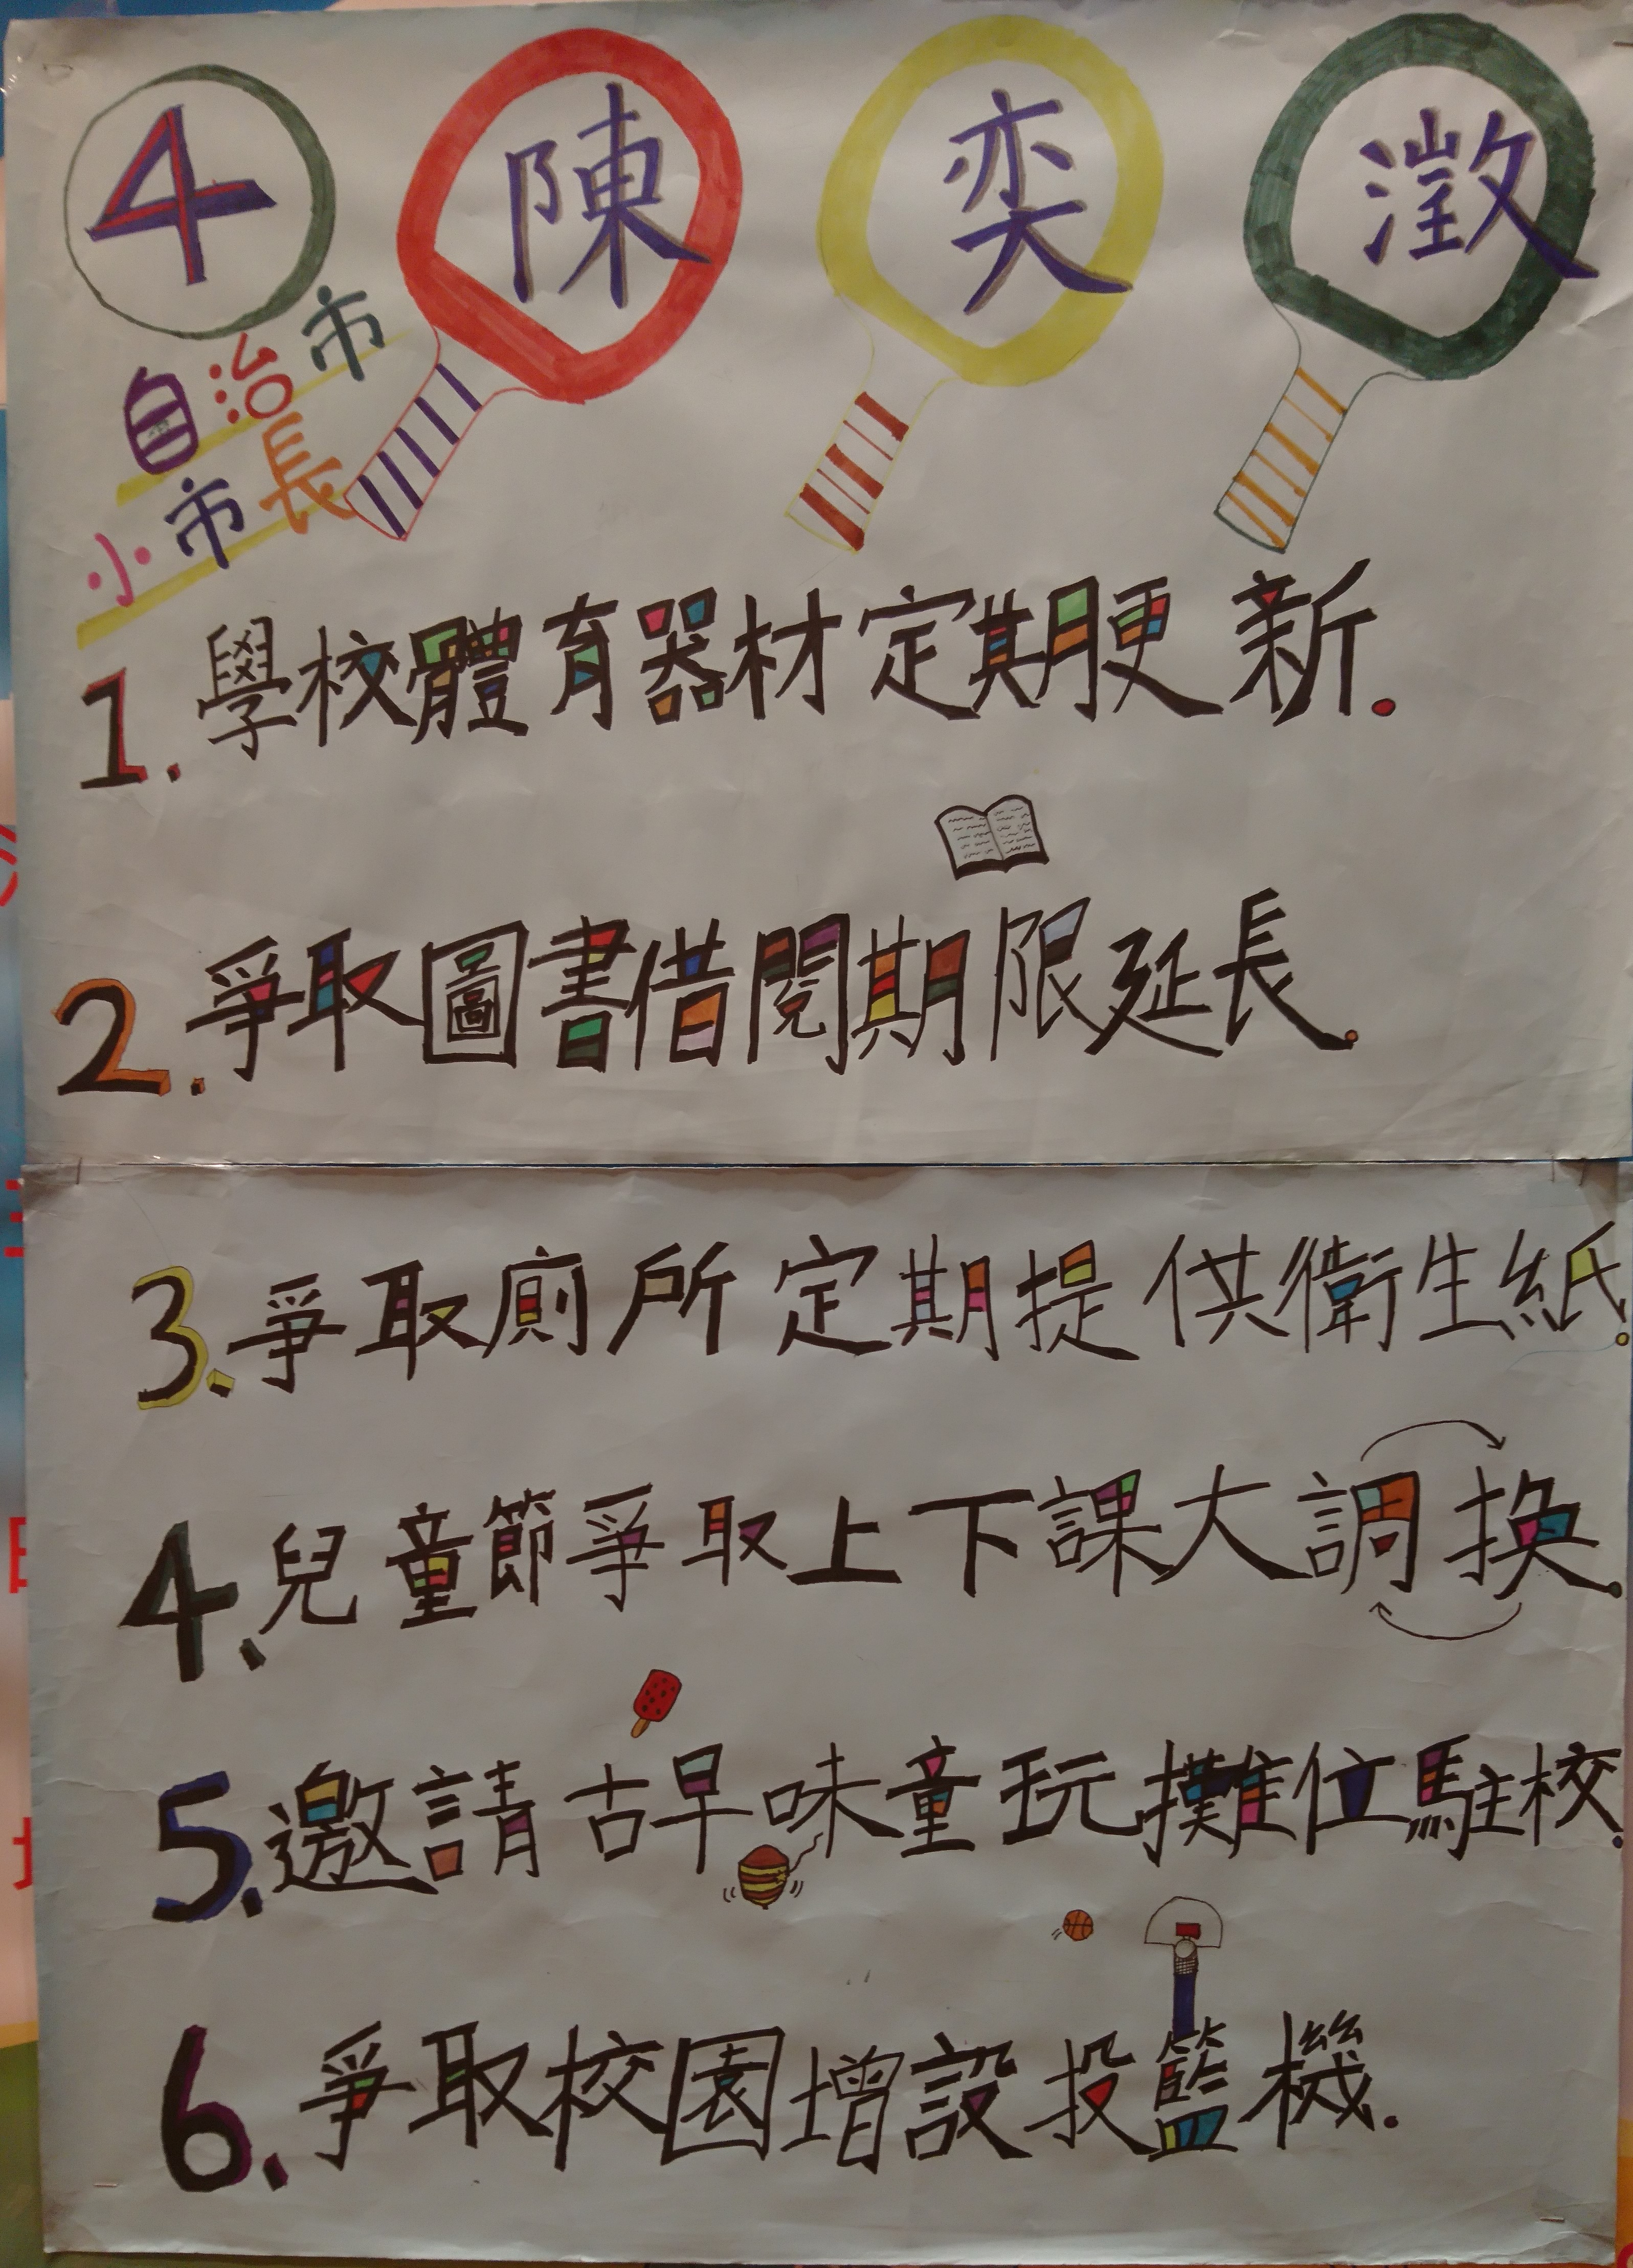 4 陳 奕 澂
自治市
小市長
1. 學校體育器材定期更新.
2. 爭取圖書借閱期限延長.
3. 爭取廁所定期提供衛生紙.
4. 兒童節爭取上下課大調換.
5. 邀請古早味童玩攤位駐校.
6. 爭取校園增設投籃機.